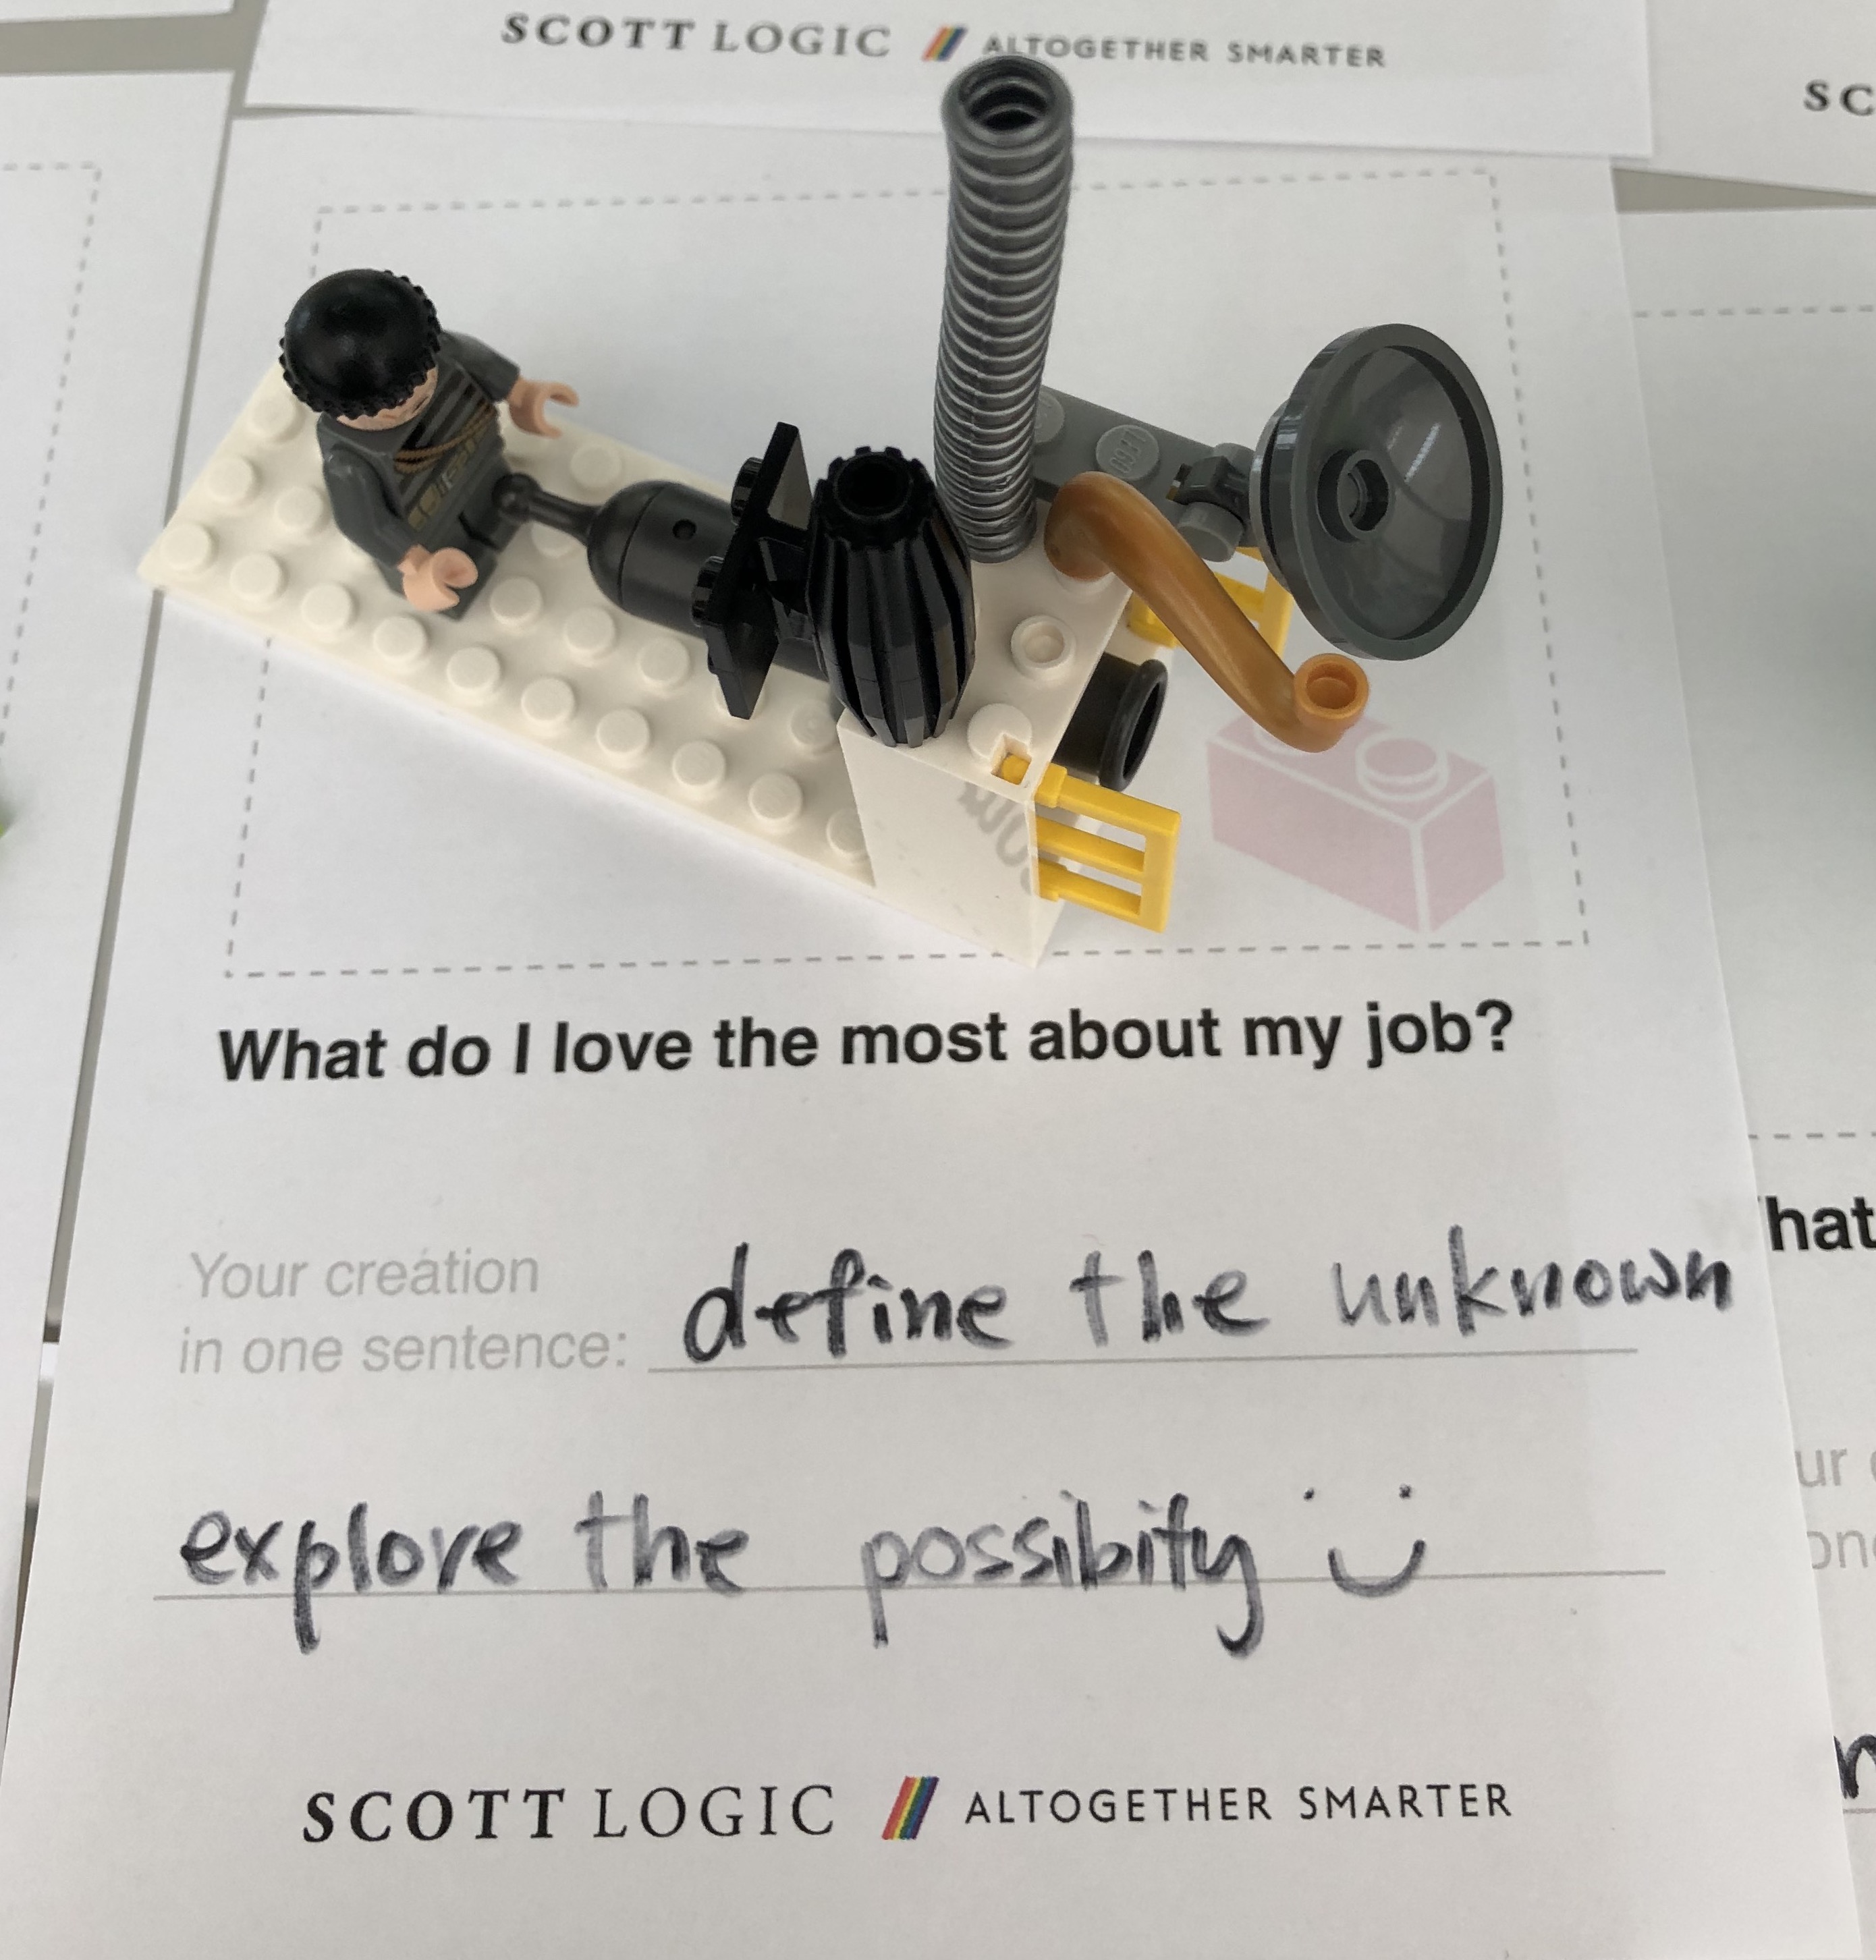 SCOTT LOGIC ALTOGETHER SMARTER
SC
LEGO
What do I love the most about my job?
hat
Your creation
in one sentence: define the unknown
explore the possibity
ur
SCOTT LOGIC ALTOGETHER SMARTER